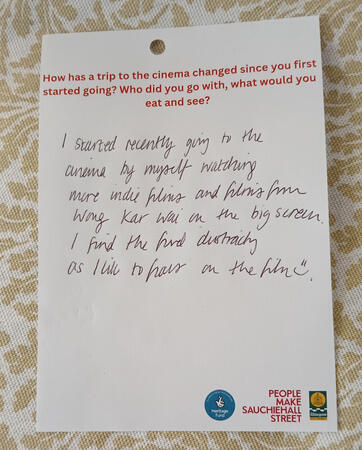 How has a trip to the cinema changed since you first
started going? Who did you go with, what would you
eat and see?
I started recently going to the
cinema by myself watching
more indie films and films from
Wong Kar Wai on the big screen.
I find the food distracting
as I like to focus on the film
Heritage
Fund
PEOPLE
MAKE
SAUCHIEHALL
STREET